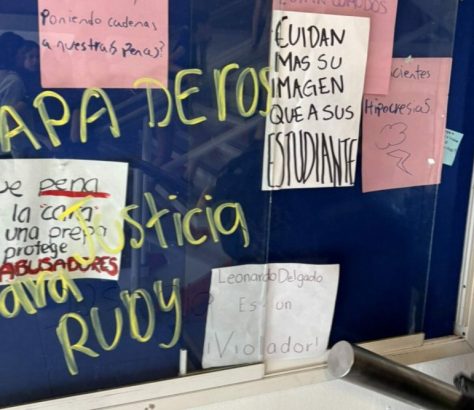 Poniendo cadenas
a nuestra(s pena)?
CUIDAN
MAS SU
IMAGEN
QUE A SUS
ESTUDIANTE
cientes
Hipocresía(s)
APADEROS
ue pena
la
una prepa
protege
ABUSADORES
Justicia
para
RUDY
Leonardo Delgado
Es un
¡Violador!